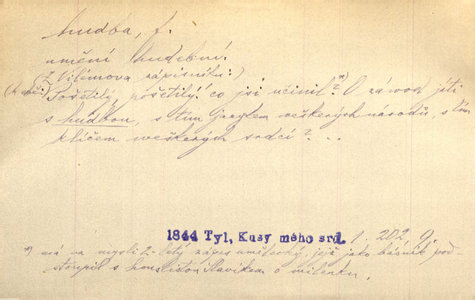 hudba, f.
umění hudební.
(Z Vilémova zápisníku:)
Pošetilý, pošetilý! co jsi učinil? *) O závod jíti
s hudbou, s tím Graalem veškerých národů, s tím
klíčem veškerých srdcí? ...
1844 Tyl, Kusy mého srd. 1. 202, 9.
*) má na mysli zápas umělecký, jejž jako básník pod-
stoupil s houslistou Slavíkem o milenku.